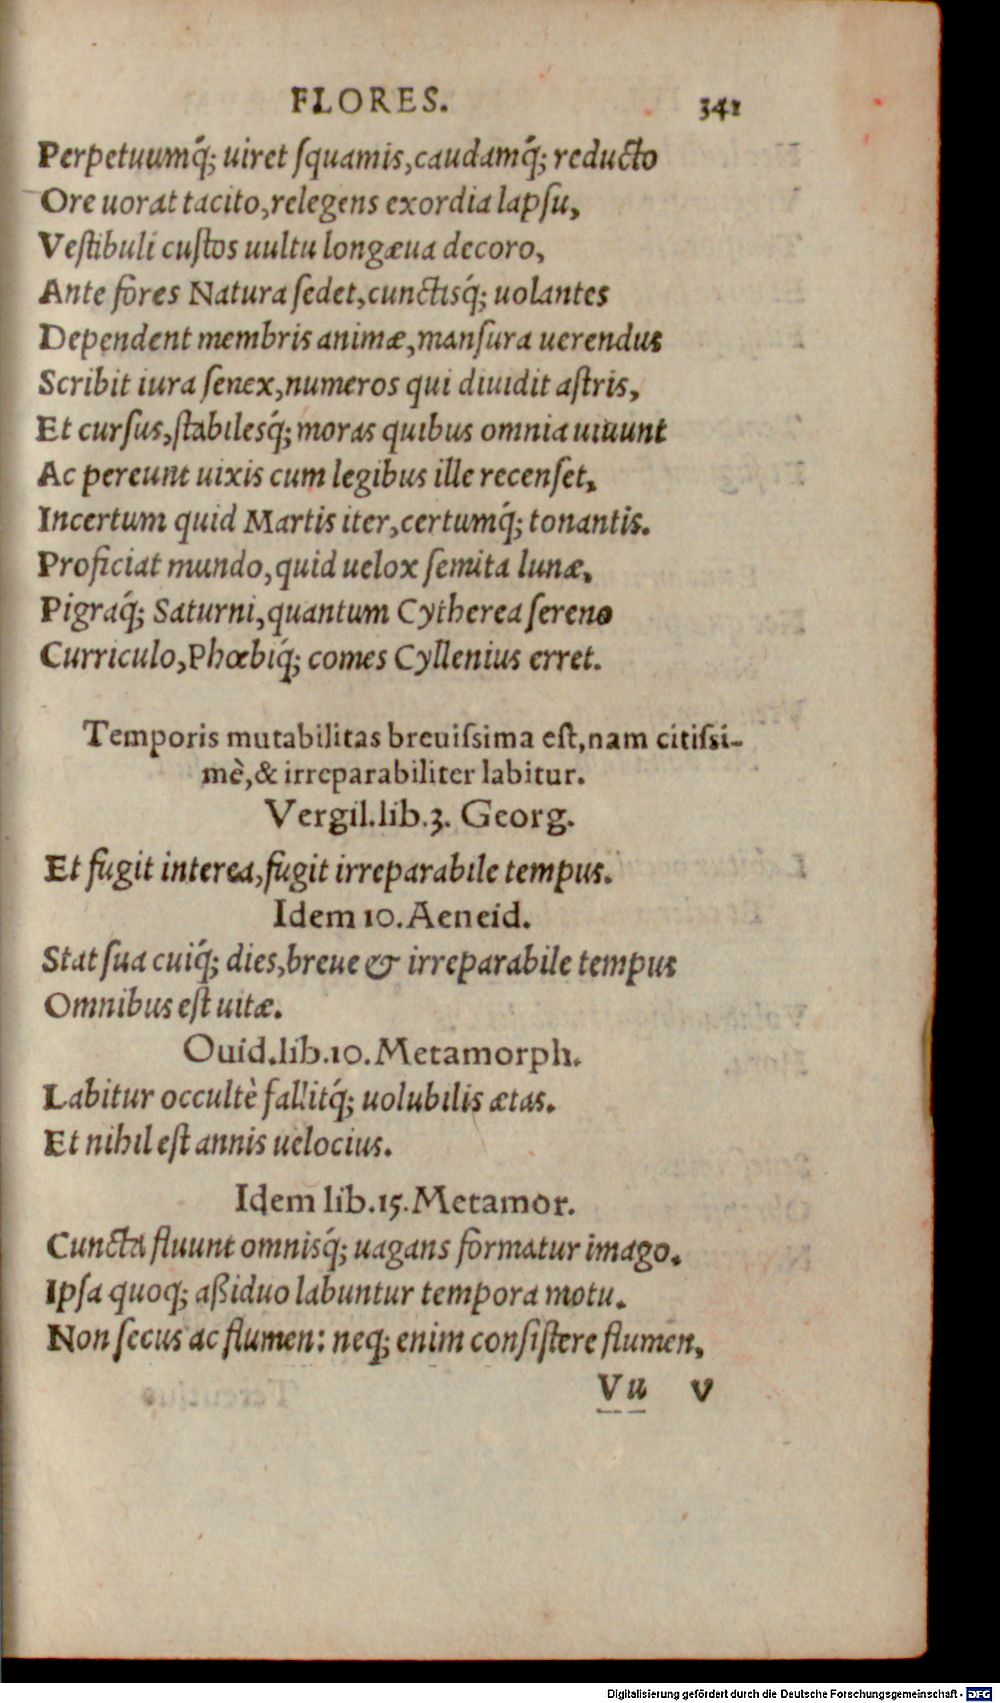 FLORES. 341
Perpetuumq́; uiret ſquamis,caudamq́; reducto
Ore uorat tacito,relegens exordia lapſu,
Veſtibuli cuſtos uultu longæua decoro,
Ante fores Natura ſedet,cunctisq́; uolantes
Dependent membris animæ,manſura uerendus
Scribit iura ſenex,numeros qui diuidit aſtris,
Et curſus,ſtabilesq́; moras quibus omnia uiuunt
Ac pereunt uixis cum legibus ille recenſet,
Incertum quid Martis iter,certumq́; tonantis.
Proficiat mundo,quid uelox ſemita lunæ,
Pigraq́; Saturni,quantum Cytherea ſereno
Curriculo,Phœbiq́; comes Cyllenius erret.
Temporis mutabilitas breuiſsima eſt,nam citiſsi-
mè,& irreparabiliter labitur.
Vergil.lib.3. Georg.
Et fugit interea,fugit irreparabile tempus.
Idem 10.Aeneid.
Stat ſua cuiq́; dies,breue & irreparabile tempus
Omnibus eſt uitæ.
Ouid.lib.10.Metamorph.
Labitur occultè fallitq́; uolubilis ætas.
Et nihil eſt annis uelocius.
Idem lib.15.Metamor.
Cuncta fluunt omnisq́; uagans formatur imago.
Ipſa quoq; aßiduo labuntur tempora motu.
Non ſecus ac flumen: neq; enim conſiſtere flumen,
Vu v
Digitalisierung gefördert durch die Deutsche Forschungsgemeinschaft - DFG